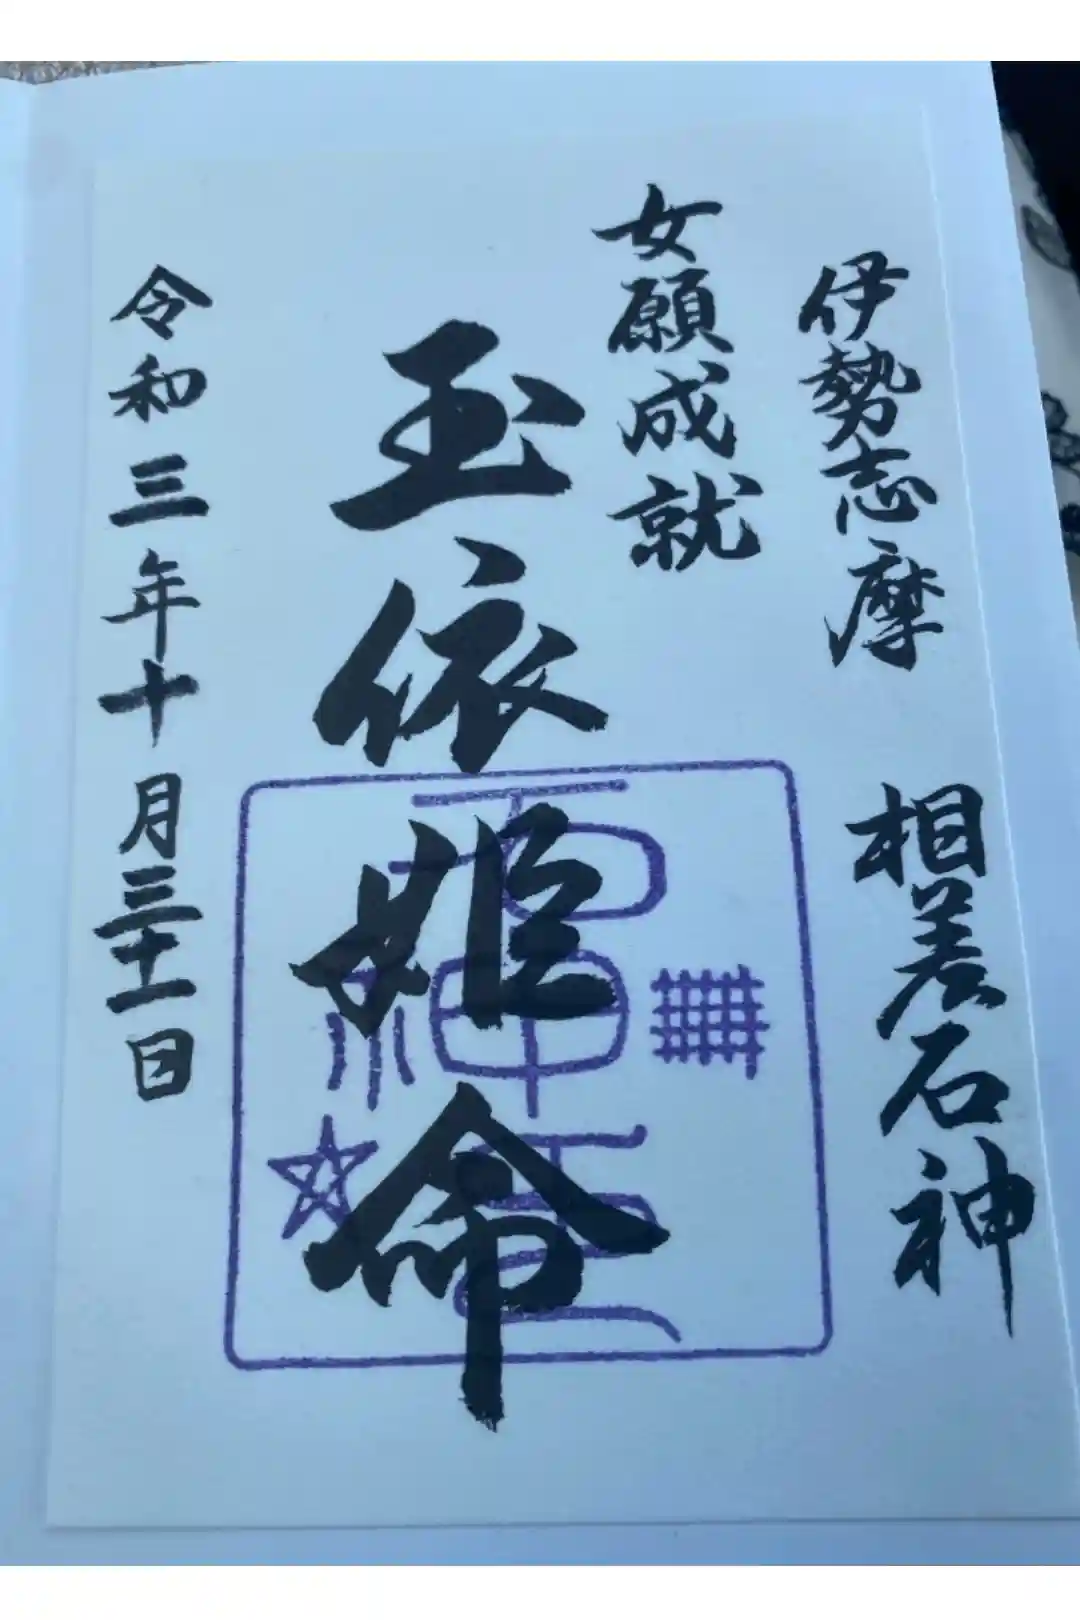 伊勢志摩 相差石神
女願成就
玉依姫命
令和三年十月三十一日
石神